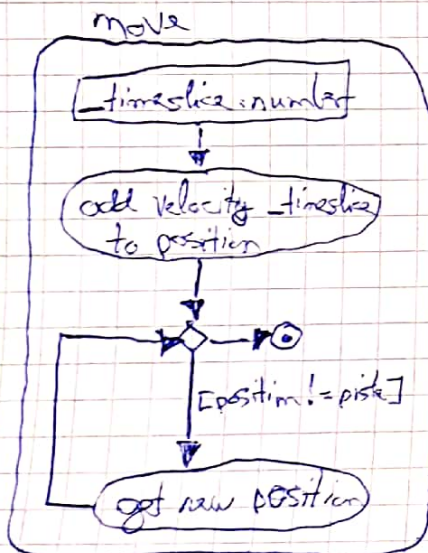 move
_timeslice:number
add velocity _timeslice
to position
[position != piste]
get new position